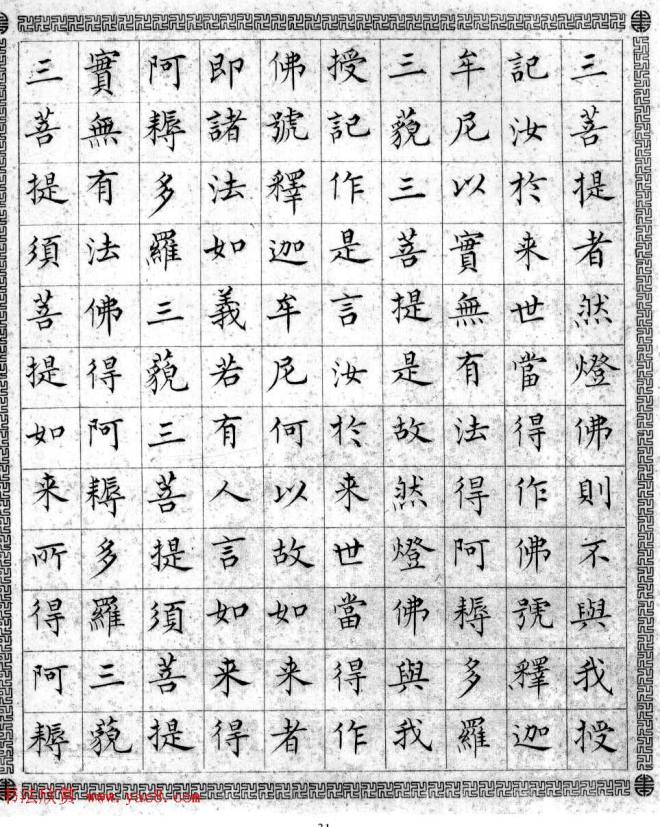 三菩提者然燈佛則不與我授
記汝於来世當得作佛號釋迦
牟尼以實無有法得阿耨多羅
三藐三菩提是故然燈佛與我
授記作是言汝於来世當得作
佛號釋迦牟尼何以故如来者
即諸法如義若有人言如来得
阿耨多羅三藐三菩提須菩提
實無有法佛得阿耨多羅三藐
三菩提須菩提如来所得阿耨
书法欣赏 www.yac8.com
31